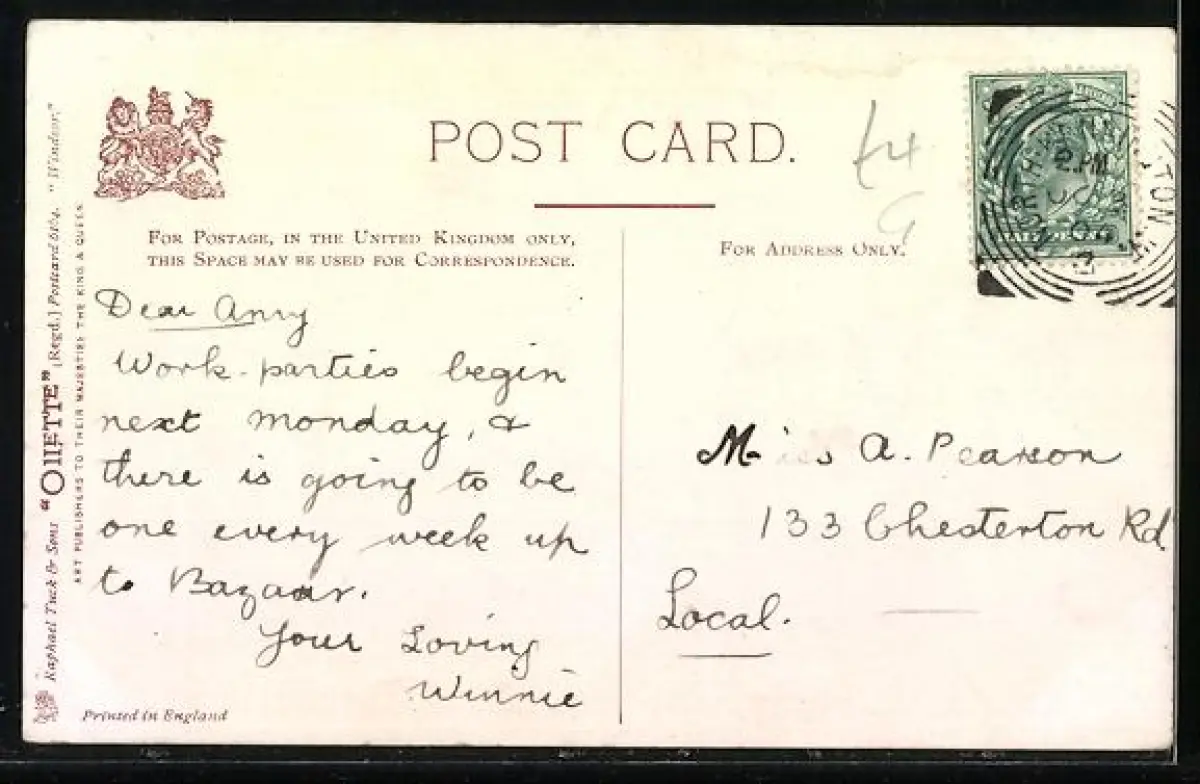 POST CARD.
FOR POSTAGE, IN THE UNITED KINGDOM ONLY,
THIS SPACE MAY BE USED FOR CORRESPONDENCE.
FOR ADDRESS ONLY.
Dear Anny
Work-parties begin
next Monday, &
there is going to be
one every week up
to Bazaar.
Your Loving
Winnie
Miss A. Pearson
133 Chesterton Rd
Local.
Raphael Tuck & Sons "OILETTE" [Regd.] Postcard 6164. "Windsor."
ART PUBLISHERS TO THEIR MAJESTIES THE KING & QUEEN
Printed in England
HALFPENNY
2. PM